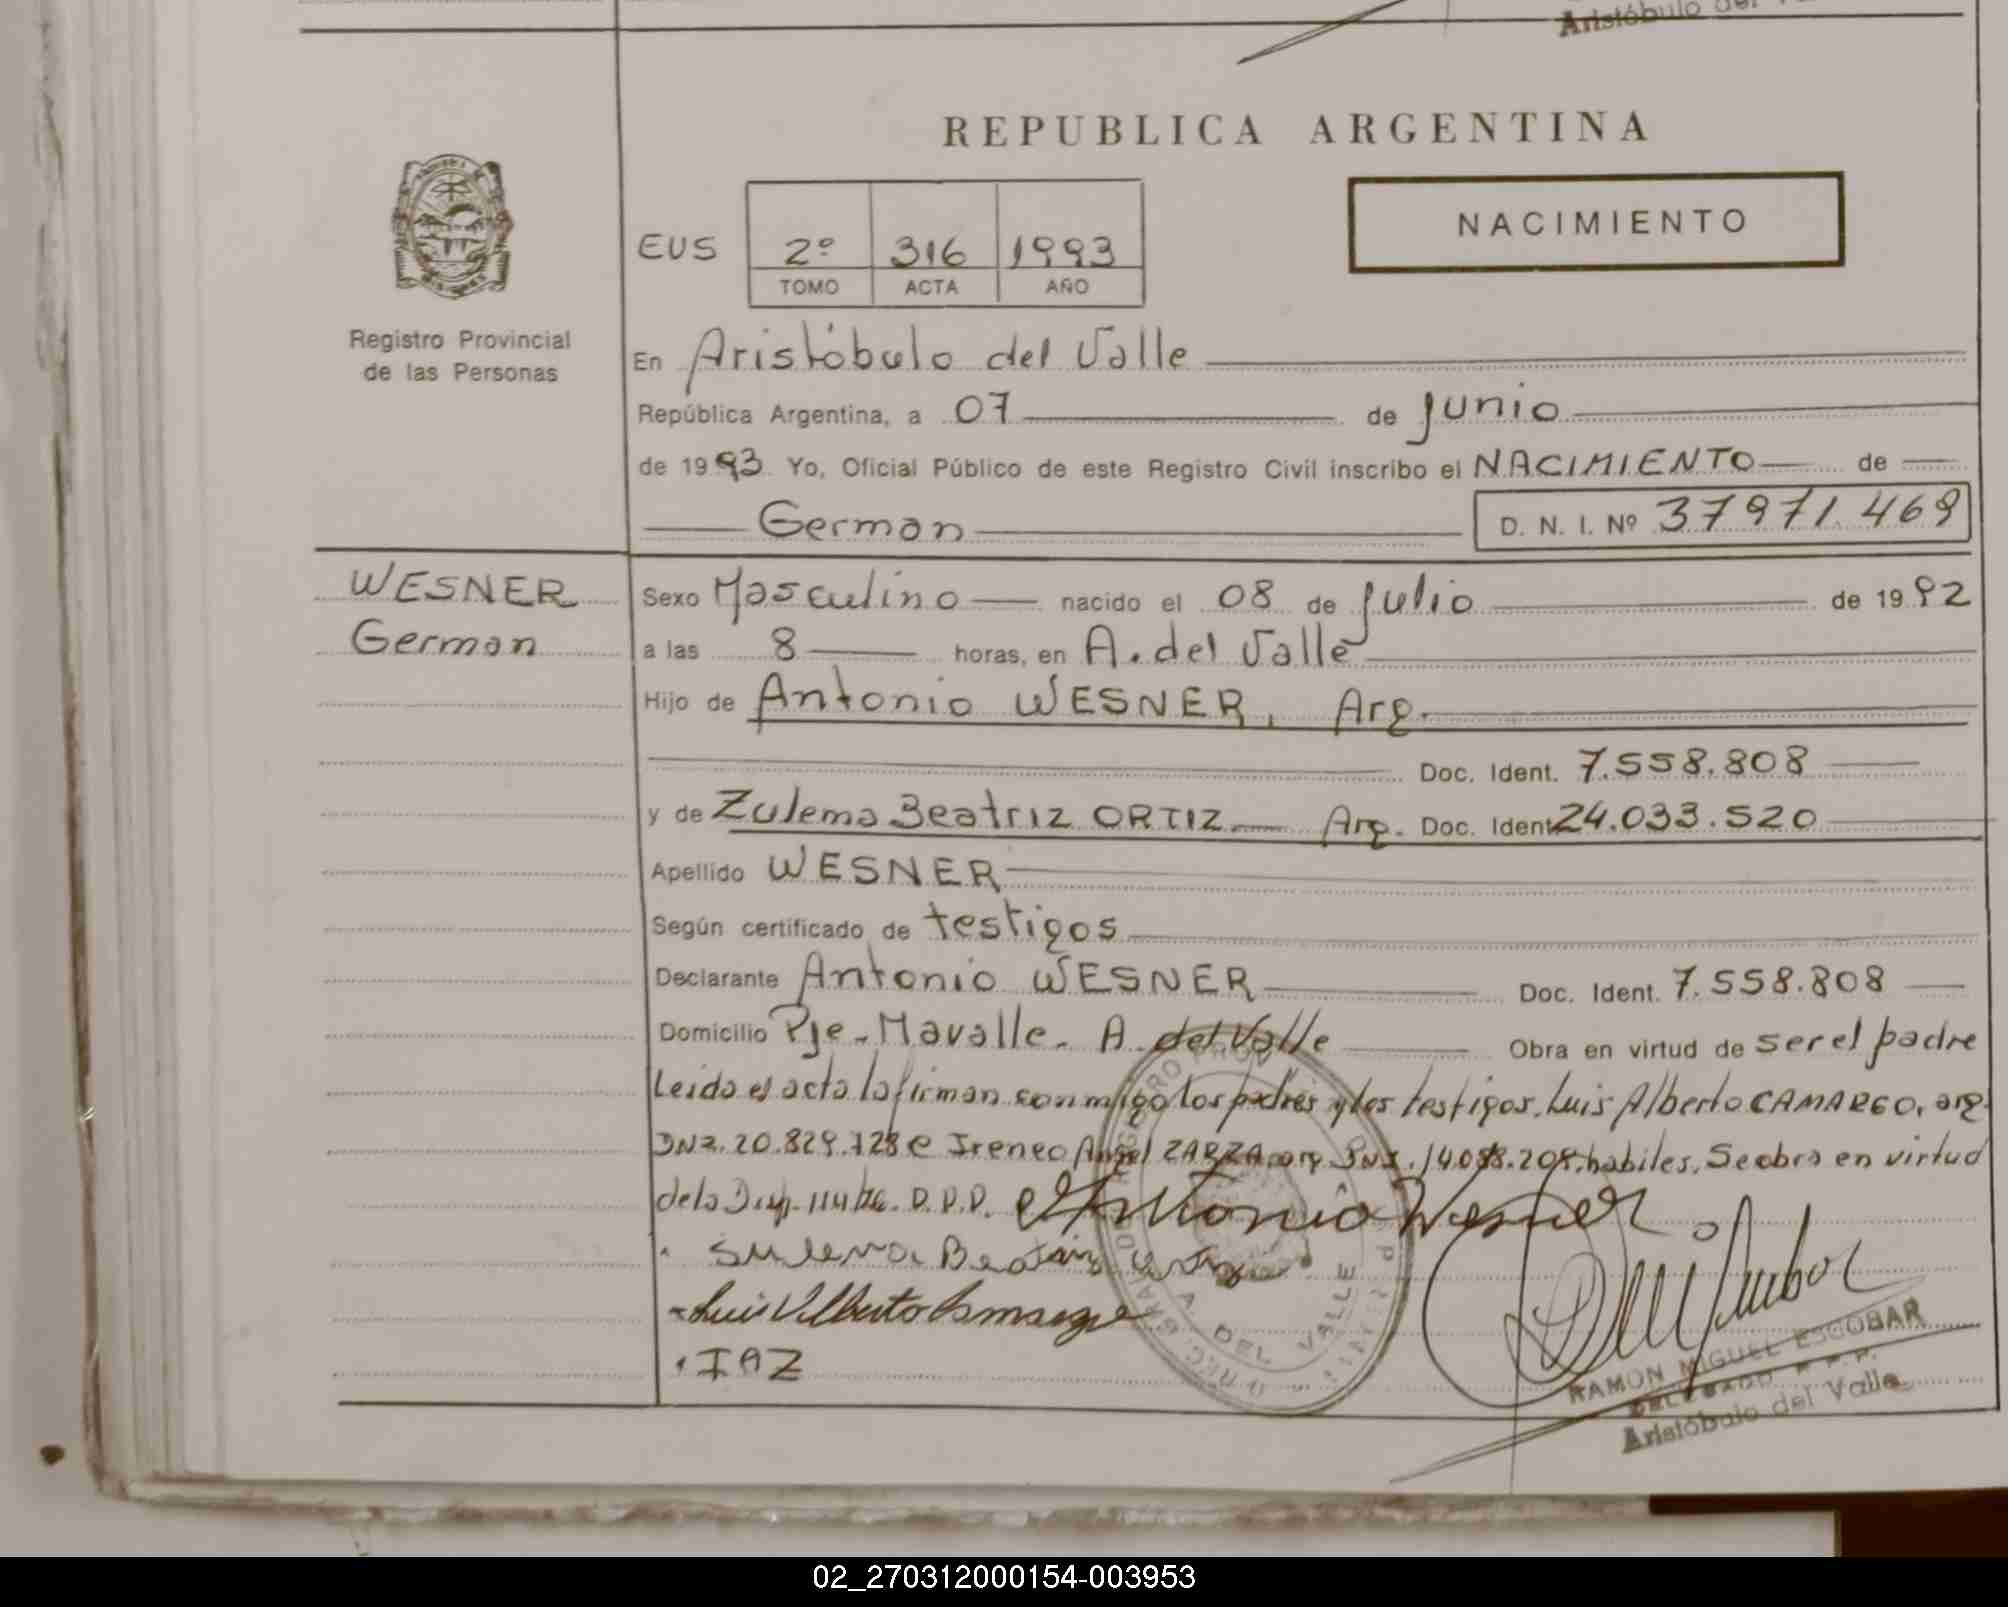 Aristóbulo del
REPUBLICA ARGENTINA
NACIMIENTO
EUS 2º 316 1993
TOMO ACTA AÑO
Registro Provincial
de las Personas
En Aristóbulo del Valle
República Argentina, a 07 de Junio
de 1993 Yo, Oficial Público de este Registro Civil inscribo el NACIMIENTO de
German D. N. I. Nº 37971.469
WESNER
German
Sexo Masculino nacido el 08 de Julio de 1992
a las 8 horas, en A. del Valle
Hijo de Antonio WESNER, Arg.
Doc. Ident. 7.558.808
y de Zulema Beatriz ORTIZ Arg. Doc. Ident 24.033.520
Apellido WESNER
Según certificado de testigos
Declarante Antonio WESNER Doc. Ident. 7.558.808
Domicilio Pje. Mavalle. A. del Valle Obra en virtud de ser el padre
Leida el acta la firman conmigo los padres y los testigos, Luis Alberto CAMARGO, arg.
DNI. 20.829.728 e Ireneo Angel ZARZA, arg. DNI. habiles. Se obra en virtud
de la Disp. D.P.P. Antonio Wesner
Sulema Beatriz
Luis Alberto Camargo
IAZ
DEL VALLE
RAMON MIGUEL ESCOBAR
DELEGADO R.P.P.
Aristóbulo del Valle
02_270312000154-003953